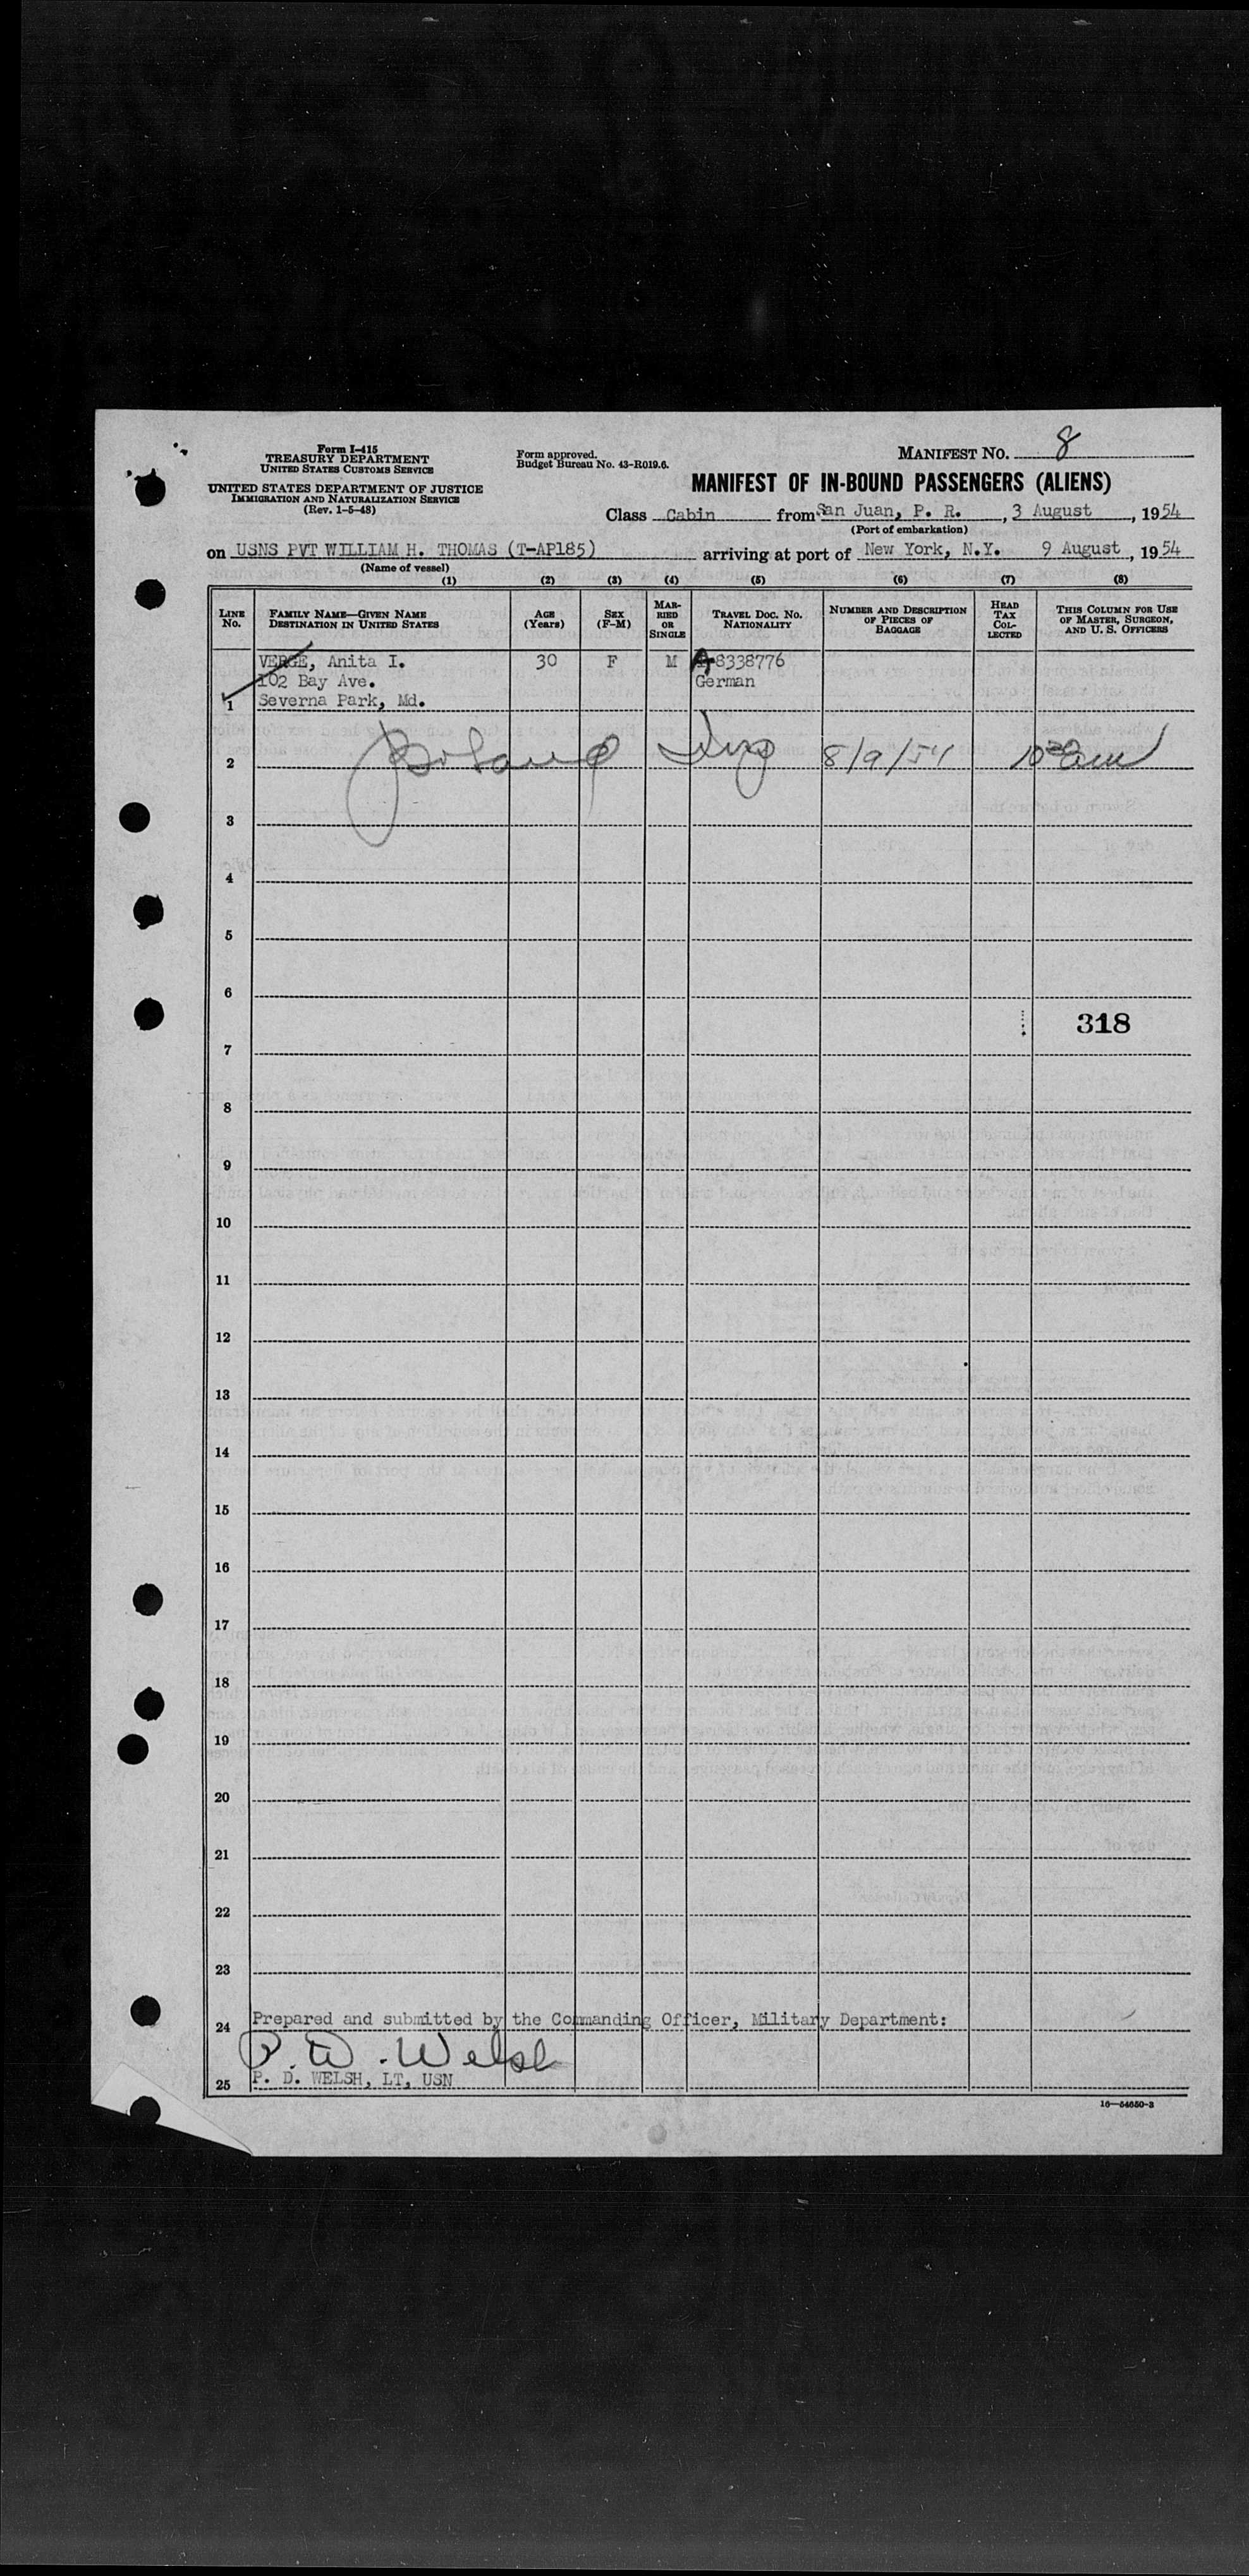 Form I-415
TREASURY DEPARTMENT
UNITED STATES CUSTOMS SERVICE
UNITED STATES DEPARTMENT OF JUSTICE
IMMIGRATION AND NATURALIZATION SERVICE
(Rev. 1-5-48)
Form approved.
Budget Bureau No. 43-R019.6.
MANIFEST No. 8
MANIFEST OF IN-BOUND PASSENGERS (ALIENS)
Class Cabin from San Juan, P. R., 3 August, 1954
(Port of embarkation)
on USNS PVT WILLIAM H. THOMAS (T-AP185) arriving at port of New York, N.Y. 9 August, 1954
(Name of vessel)
(1) (2) (3) (4) (5) (6) (7) (8)
LINE No.
FAMILY NAME—GIVEN NAME
DESTINATION IN UNITED STATES
AGE (Years)
SEX (F-M)
MARRIED OR SINGLE
TRAVEL DOC. No. NATIONALITY
NUMBER AND DESCRIPTION OF PIECES OF BAGGAGE
HEAD TAX COLLECTED
THIS COLUMN FOR USE OF MASTER, SURGEON, AND U. S. OFFICERS
VERGE, Anita I. 30 F M A-8338776
102 Bay Ave. German
1 Severna Park, Md.
2 8/9/54 10 30 am
3
4
5
6
318
7
8
9
10
11
12
13
14
15
16
17
18
19
20
21
22
23
Prepared and submitted by the Commanding Officer, Military Department:
24
P. D. Welsh
P. D. WELSH, LT, USN
25
16—54650-3